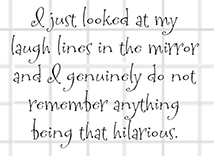 I just looked at my
laugh lines in the mirror
and I genuinely do not
remember anything
being that hilarious.